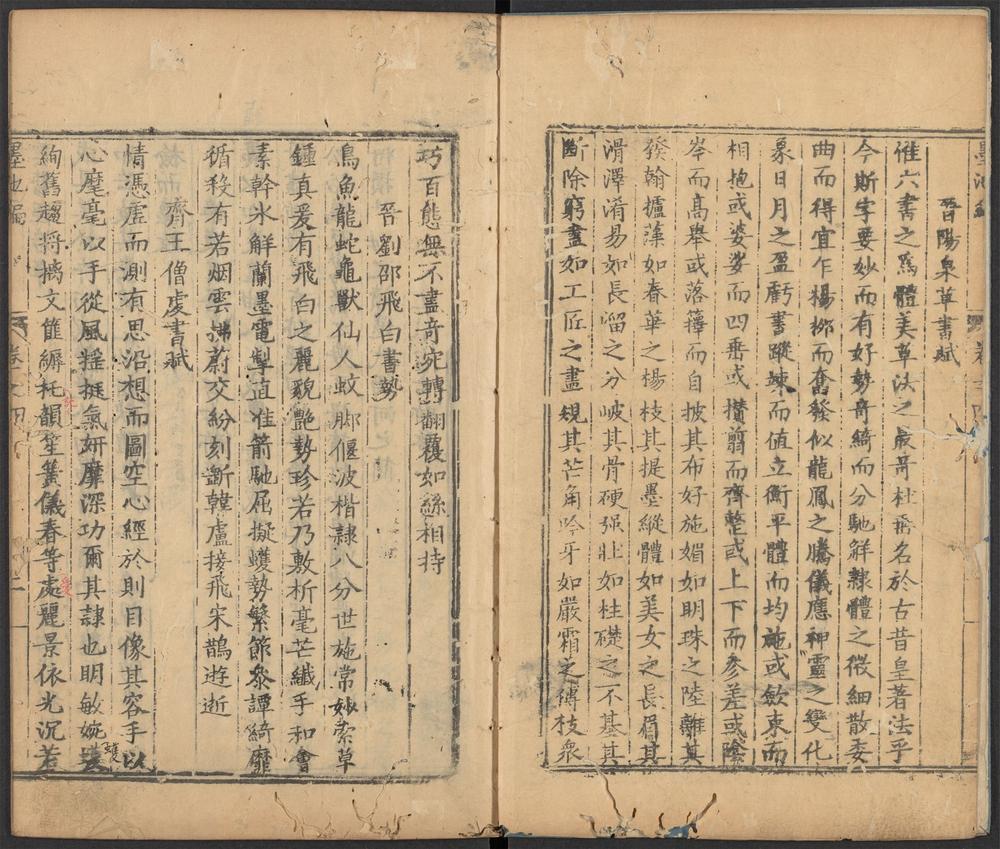 墨池編 卷之
晉陽泉草書賦
惟六書之爲體美草法之最竒杜垂名於古昔皇著法乎
今斯字要妙而有好勢竒綺而分馳解隸體之微細散委
曲而得宜乍楊桞而奮發似龍鳳之騰儀應神靈之變化
象日月之盈虧書蹤竦而值立衡平體而均施或歛束而
相抱或婆娑而四垂或攅翦而齊整或上下而參差或陰
岑而高舉或落籜而自披其布好施媚如明珠之陸離其
發翰攄藻如春華之楊枝其提墨縱體如美女之長眉其
滑澤淆易如長溜之分岐其骨硬强壯如柱礎之不基其
斷除窮盡如工匠之盡規其芒角吟牙如嚴霜之傅枝衆
巧百態無不盡竒宛轉翻覆如絲相持
晉劉邵飛白書勢
鳥魚龍蛇龜獸仙人蚊脚偃波楷隷八分世施常妙索草
鍾真爰有飛白之麗貌艷勢珍若乃敷析毫芒纖手和會
素幹氷解蘭墨電掣直准箭馳屈擬蠖勢繁節叅譚綺靡
循殺有若烟雲拂蔚交紛刻斷韓盧接飛宋鵲遊逝
齊王僧虔書賦
情憑虛而測有思沿想而圖空心經於則目像其容手以
心麾毫以手從風揺挺氣妍靡深功爾其隷也明敏婉蠖
絢舊趨將摛文篚縟托韻笙簧儀春等處麗景依光沉若
墨池編 卷之四 二